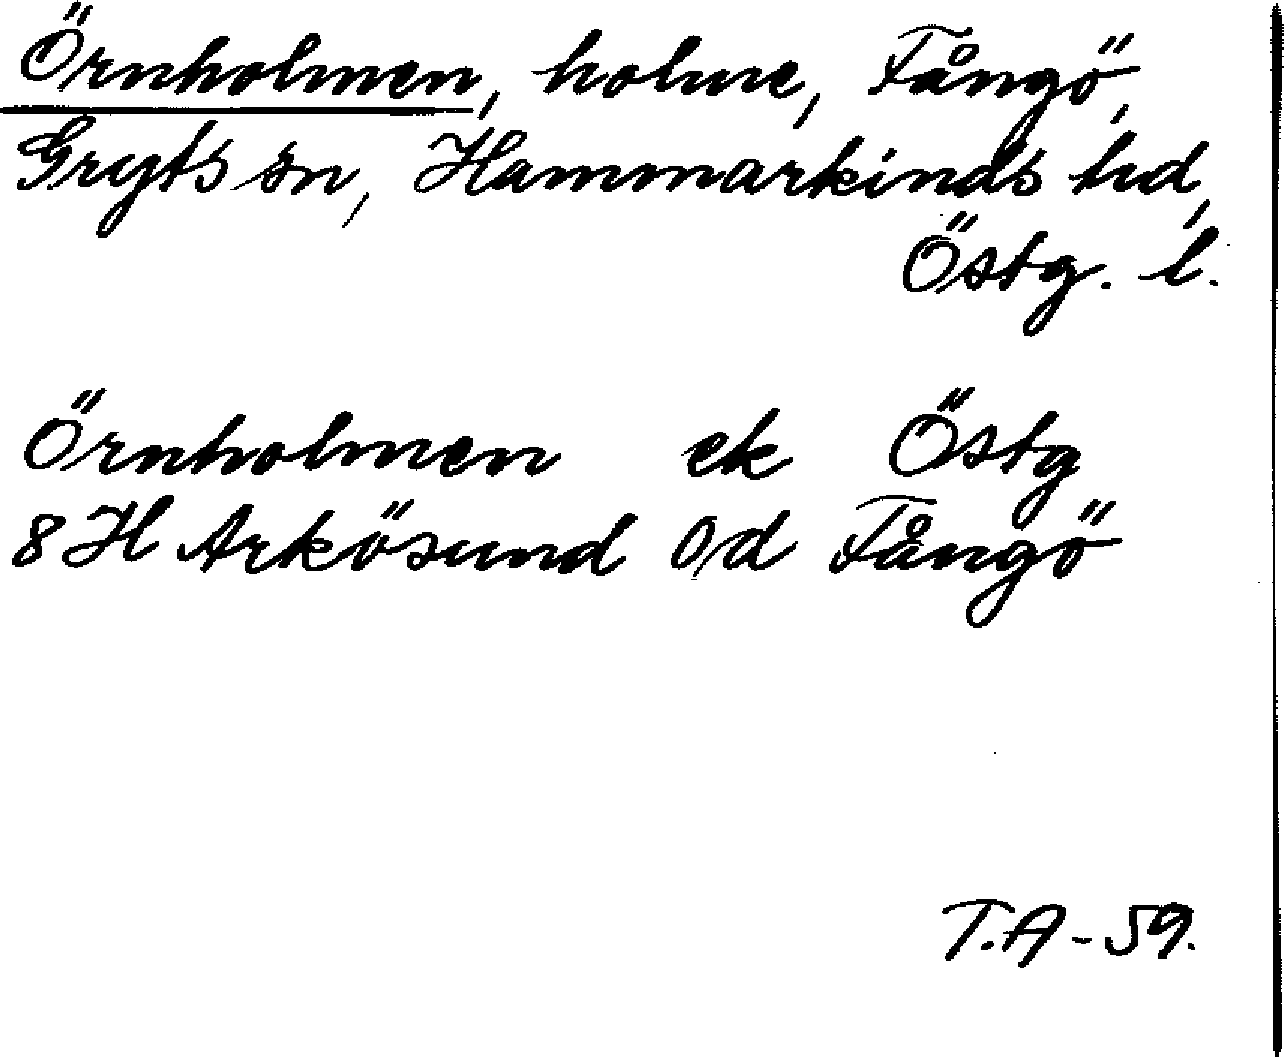 Örnholmen, holme, Fångö,
Gryts sn, Hammarkinds hd,
Östg. l.
Örnholmen ek Östg
8 H Arkösund 0/d Fångö
T.A-59.